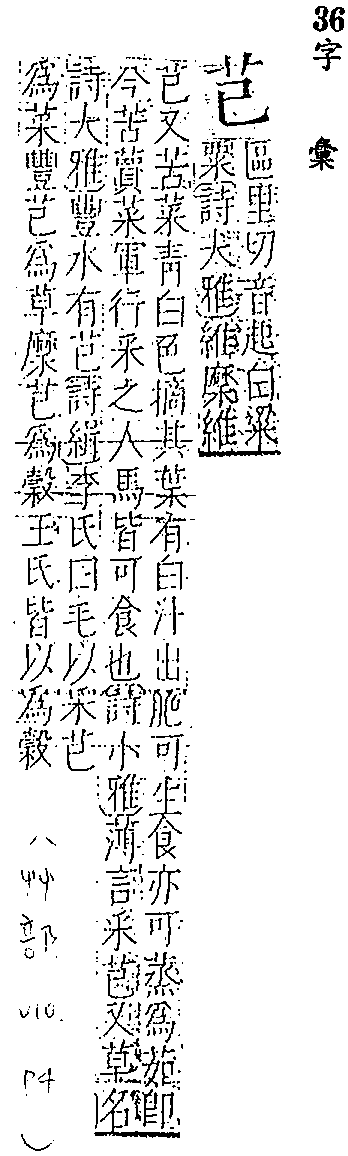 36
字彙
芑 區里切音起白粱
粟詩大雅維穈維
芑又苦菜靑白色摘其葉有白汁出肥可生食亦可蒸爲茹卽
今苦蕒菜軍行采之人馬皆可食也詩小雅薄言采芑又草名
詩大雅豐水有芑詩緝李氏曰毛以采芑
爲菜豐芑爲草穈芑爲穀王氏皆以爲穀
(艸部 v10. P4)